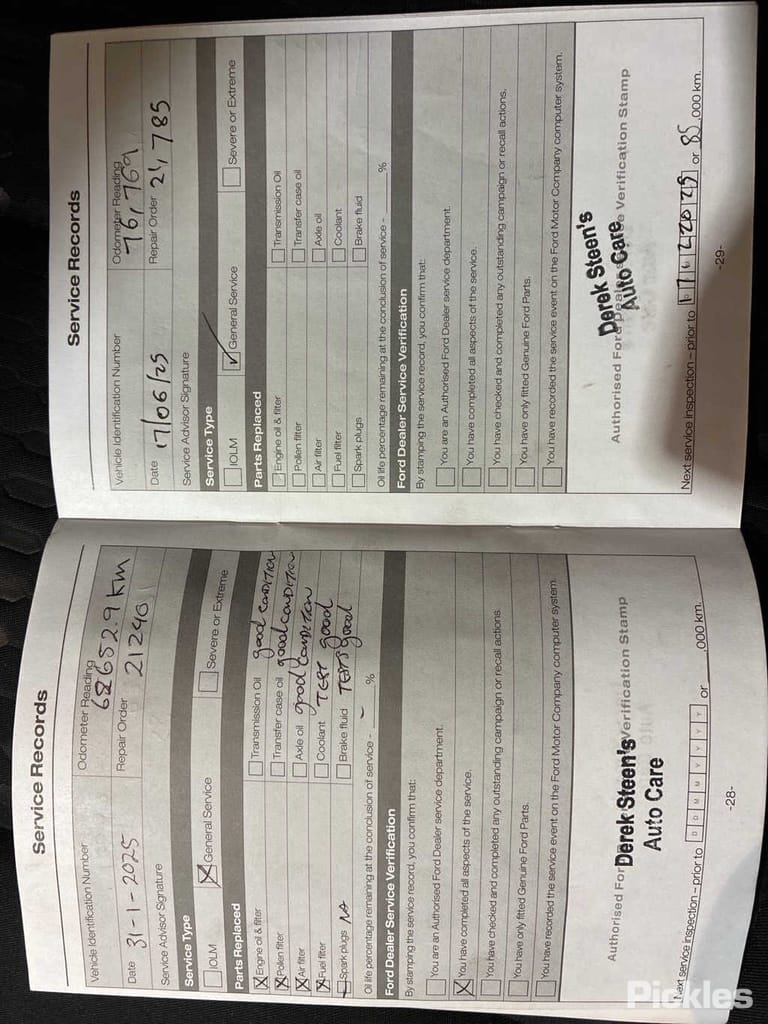 Service Records
Vehicle Identification Number
Odometer Reading
68652.9 KM
Date 31-1-2025
Repair Order 21240
Service Advisor Signature
Service Type
IOLM
General Service
Severe or Extreme
Parts Replaced
Engine oil & filter
Transmission Oil good CONDITION
Pollen filter
Transfer case oil good CONDITION
Air filter
Axle oil good CONDITION
Fuel filter
Coolant TEST good
Spark plugs NA
Brake fluid TEST good
Oil life percentage remaining at the conclusion of service - %
Ford Dealer Service Verification
By stamping the service record, you confirm that:
You are an Authorised Ford Dealer service department.
You have completed all aspects of the service.
You have checked and completed any outstanding campaign or recall actions.
You have only fitted Genuine Ford Parts.
You have recorded the service event on the Ford Motor Company computer system.
Authorised Ford Verification Stamp
Derek Steen's
Auto Care
Next service inspection – prior to D D M M Y Y Y Y or ,000 km.
-28-
Service Records
Vehicle Identification Number
Odometer Reading
76,769
Date 17/06/25
Repair Order 21,785
Service Advisor Signature
Service Type
IOLM
General Service
Severe or Extreme
Parts Replaced
Engine oil & filter
Transmission Oil
Pollen filter
Transfer case oil
Air filter
Axle oil
Fuel filter
Coolant
Spark plugs
Brake fluid
Oil life percentage remaining at the conclusion of service - %
Ford Dealer Service Verification
By stamping the service record, you confirm that:
You are an Authorised Ford Dealer service department.
You have completed all aspects of the service.
You have checked and completed any outstanding campaign or recall actions.
You have only fitted Genuine Ford Parts.
You have recorded the service event on the Ford Motor Company computer system.
Authorised Ford Dealer Verification Stamp
Derek Steen's
Auto Care
Next service inspection – prior to or 85 ,000 km.
-29-
Pickles